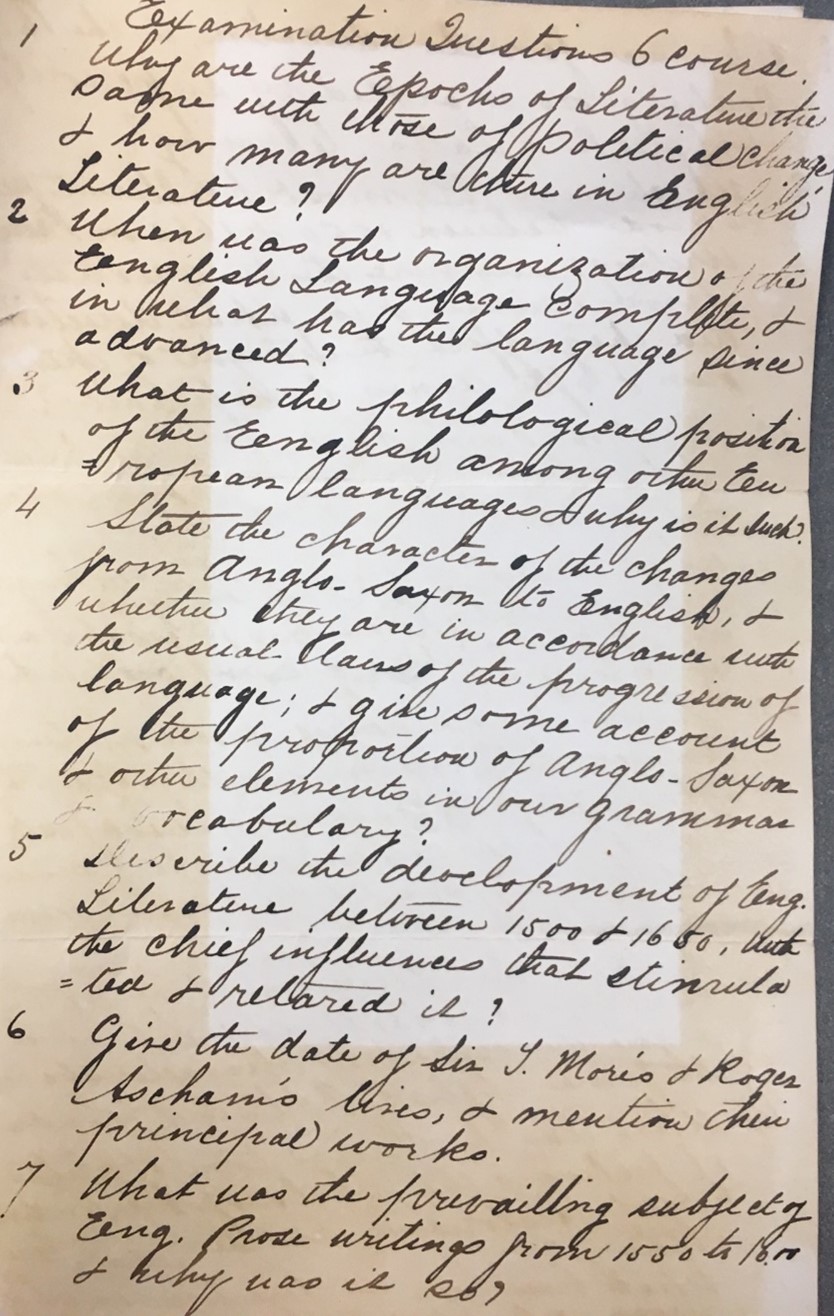 Examination Questions 6 course.
1 Why are the Epochs of Literature the
same with those of political change
& how many are there in English
Literature?
2 When was the organization of the
English Language Complete, &
in what has the language since
advanced?
3 What is the philological position
of the English among other Eu
=ropean languages & why is it such?
4 State the character of the changes
from Anglo-Saxon to English, &
whether they are in accordance with
the usual laws of the progression of
language; & give some account
of the proportion of Anglo-Saxon
& other elements in our grammar
& vocabulary?
5 Describe the development of Eng.
Literature between 1500 & 1650, with
the chief influences that stimula
=ted & retared it?
6 Give the date of Sir T. More's & Roger
Ascham's lives, & mention their
principal works.
7 What was the prevailing subject of
Eng. Prose writings from 1550 to 1600
& why was it so?